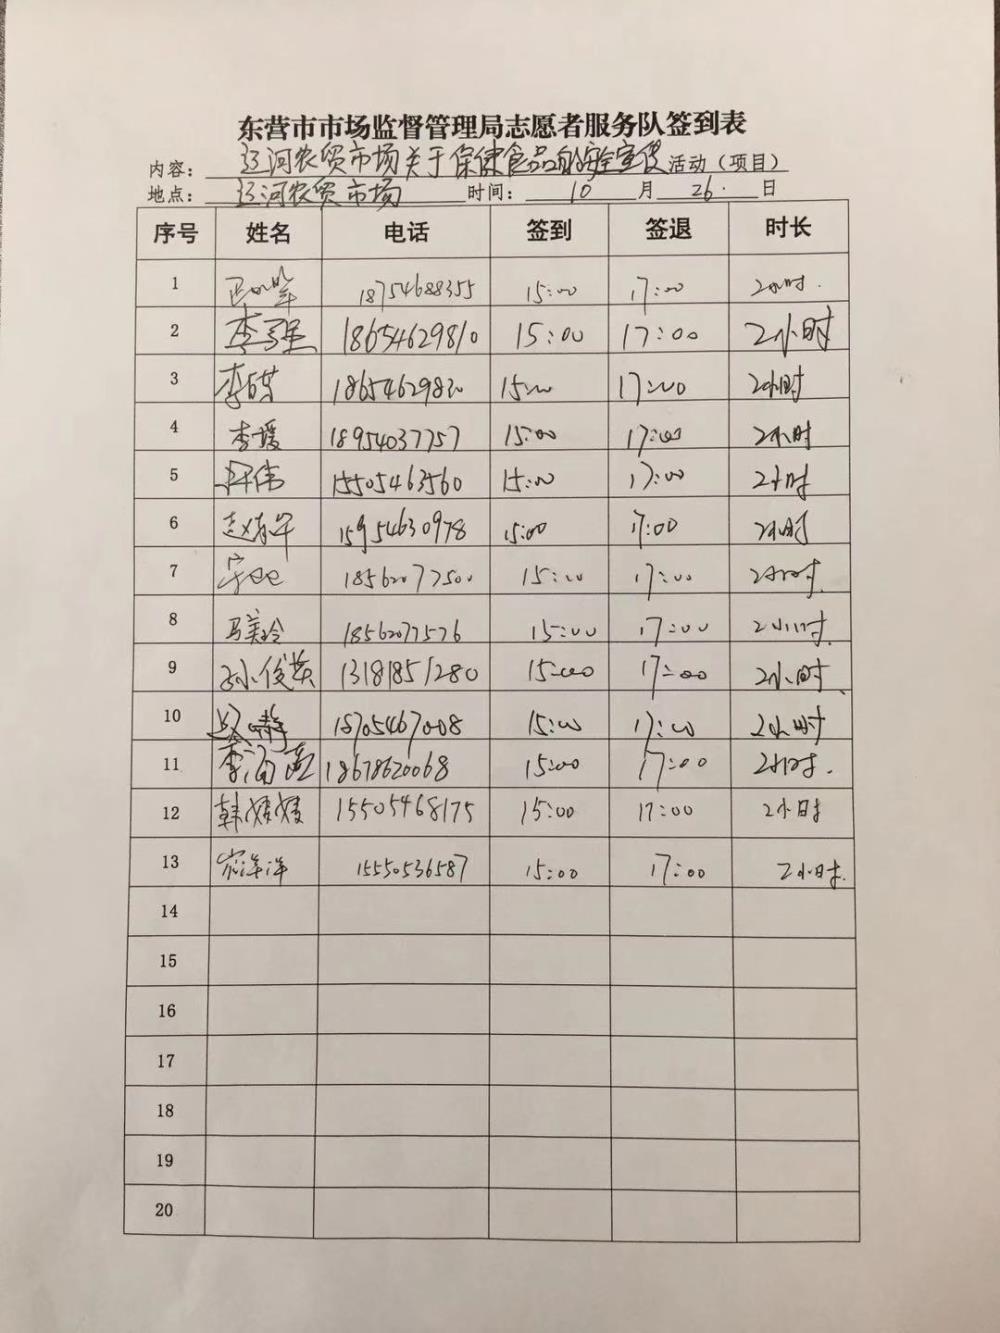 东营市市场监督管理局志愿者服务队签到表
内容：运河农贸市场关于保健食品的安全宣传活动（项目）
地点：运河农贸市场 时间：10月26日
序号 姓名 电话 签到 签退 时长
1 18754688355 15:00 17:00 2小时.
2 李强 18654629810 15:00 17:00 2小时
3 李 1865462983 15:00 17:00 2小时
4 李媛 18954037757 15:00 17:00 2小时
5 伟 15505463560 15:00 17:00 2小时
6 赵 15954630978 15:00 17:00 2小时
7 18562077500 15:00 17:00 2小时.
8 马美玲 18562077576 15:00 17:00 2小时.
9 孙俊英 13181851280 15:00 17:00 2小时
10 静 18705467008 15:00 17:00 2小时
11 李海燕 18678620068 15:00 17:00 2小时.
12 韩媛媛 15505468175 15:00 17:00 2小时
13 宋洋洋 15550536587 15:00 17:00 2小时.
14
15
16
17
18
19
20